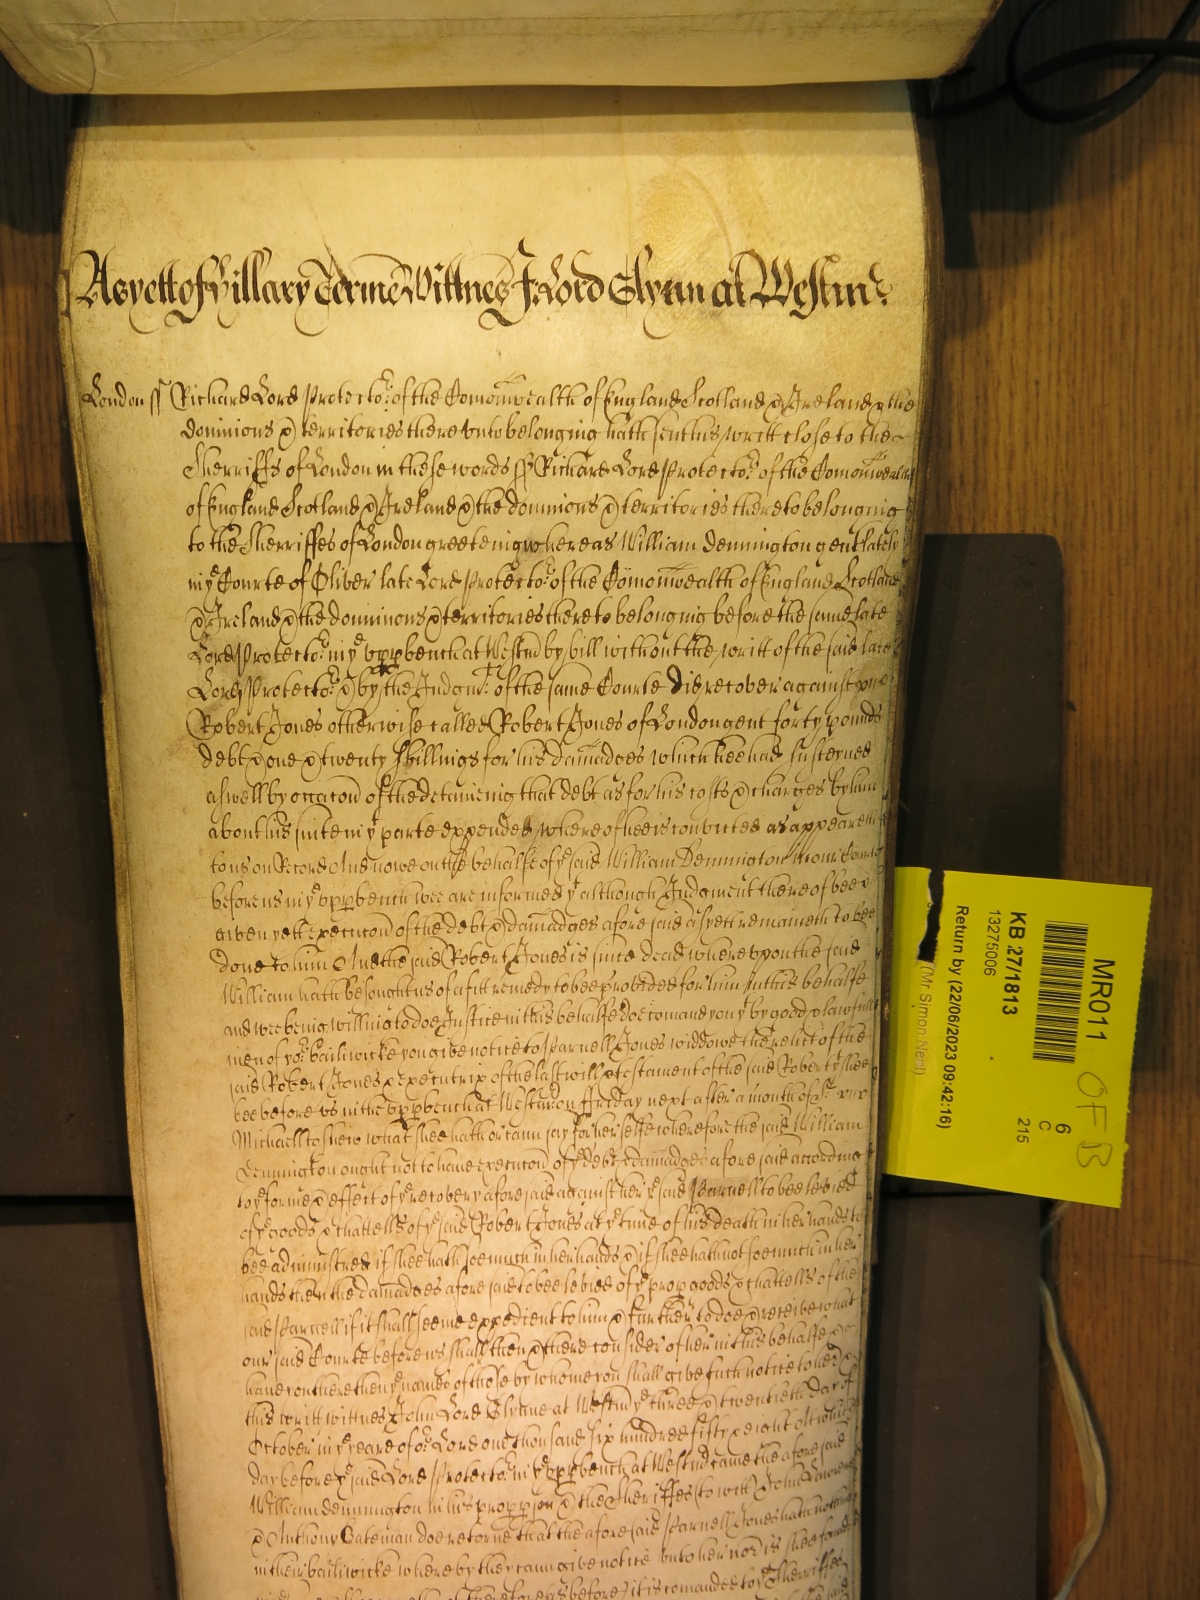 As yett of Hillary Terme Wittnes J: Lord Glynn at Westmr
London ss Richard Lord Protector of the Comonwealth of England Scotland & Ireland & the
dominions & territories there vnto belonging hath sent his writt close to the
Sherriffs of London in these words ss Richard Lord Protector of the Comonwealth
of England Scotland & Ireland & the dominions & territories thereto belonging
to the Sherriffes of London greeteing whereas William Dennington gent lately
in ye Courte of Oliver late Lord Protector of the Comonwealth of England Scotland
& Ireland & the dominions & territories thereto belonging before the same late
Lord Protector in ye vpp bench at Westm by bill without the writt of the said late
Lord Protector & by the Judgmt of the same Courte did recover against one
Robert Jones otherwise called Robert Jones of London gent forty pounds
debt & one & twenty shillings for his damadges which hee had susteyned
aswell by occacon of the deteineing that debt as for his costs & charges by him
about his suite in yt parte expended whereof hee is convicted as appeareth
to us on Record And nowe on the behalfe of ye said William Dennington in our Courte
before us in ye vpp bench wee are informed yt although Judgment thereof bee
given yet execucon of the debt & damadges aforesaid as yet remaineth to bee
done to him And the said Robert Jones is since dead wherevpon the said
William hath besought us of a fitt remedy to bee provided for him in this behalfe
and wee being willing to doe Justice in this behalfe doe comand you yt by good & lawfull
men of yor bailiwicke you give notice to Parnell Jones widdowe the relict of the
said Robert Jones & executrix of the last will & testament of the said Robert yt shee
bee before vs in the vpp bench at Westm on ffryday next after a month of St
Michaell to shew what shee hath or cann say for herselfe wherefore the said William
Dennington ought not to have execucon of ye debt & damadges aforesaid according
to ye forme & effect of ye recovery aforesaid against her ye said Parnell to bee levied
of ye goods & chattells of ye said Robert Jones at ye time of his death in her hands to
bee administred if shee hath soe much in her hands & if shee hath not soe much in her
hands then the damadges aforesaid to bee levied of ye prop goods & chattells of the
said Parnell if it shall seeme expedient to him & further to doe & receive what
our said Courte before us shall then & there consider of her in this behalfe &
have you there then ye names of those by whome you shall give such notice to her &
this writt wittnes John Lord Glynne at Westm ye three & twentieth day of
October in ye yeare of or Lord one thousand six hundred fifty & eight At which
day before ye said Lord Protector in ye vpp bench at Westm came the aforesaid
William Dennington in his prop pson & the Sheriffes (to witt) John
& Anthony Bateman doe retorne that the aforesaid Parnell Jones hath nothing
in their bailiwicke whereby they cann give notice vnto her nor is shee found
therefore as before it is comanded to ye Sherriffes
MR011
KB 27/1813
13275006
6
C
215
Return by (22/06/2023 09:42:16)
(Mr Simon Neal)
OFB